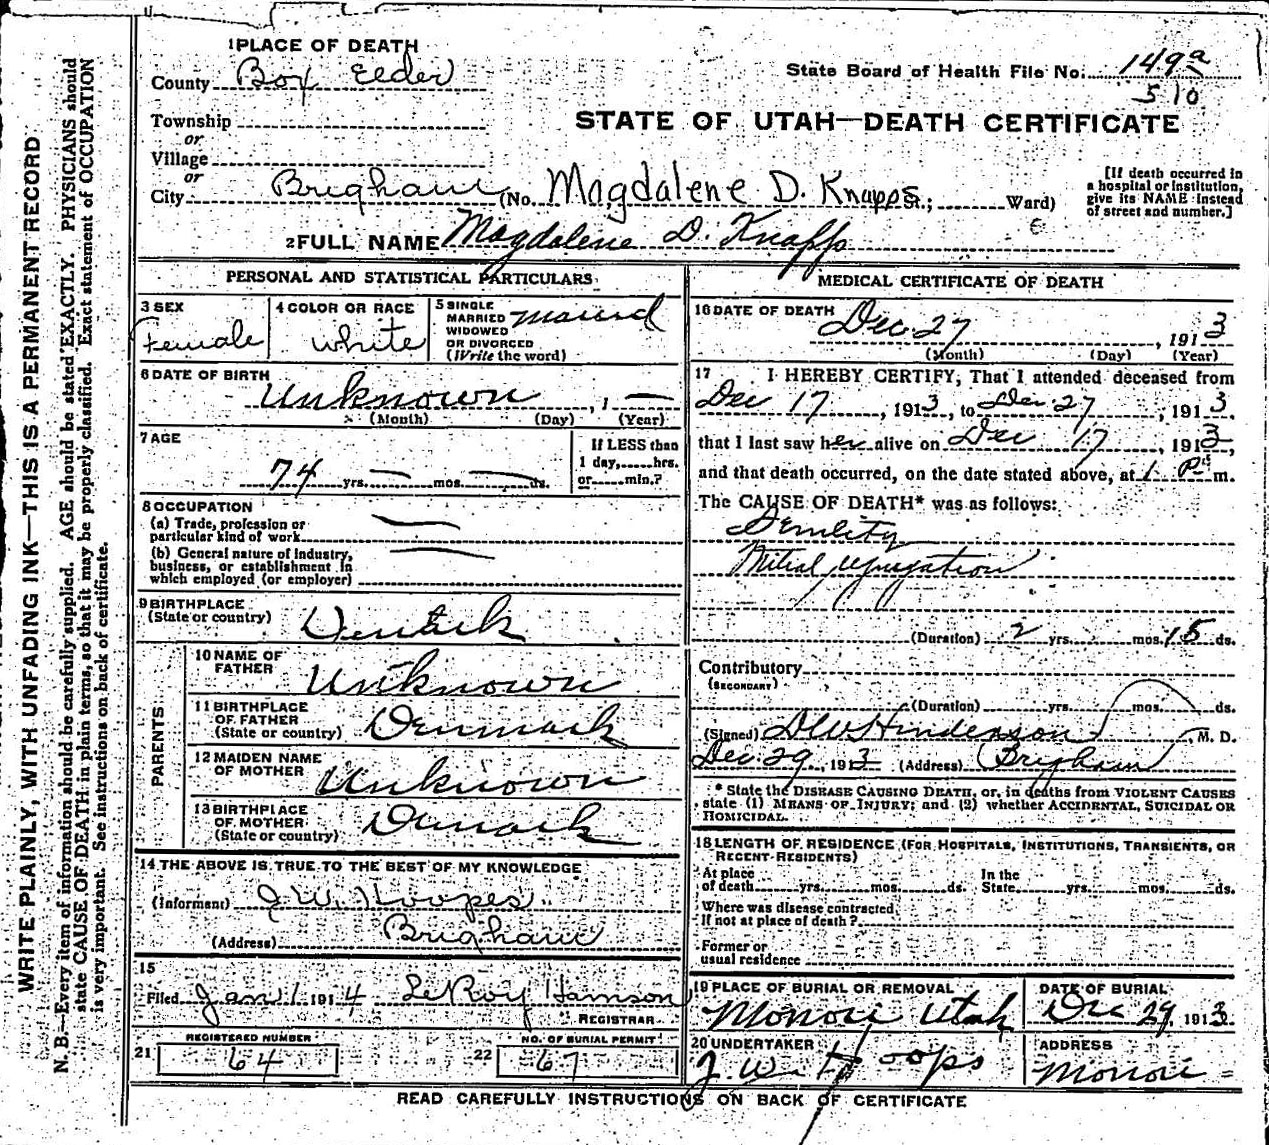 1 PLACE OF DEATH
County Box Elder
State Board of Health File No. 149a
510
Township
or
Village
or
STATE OF UTAH—DEATH CERTIFICATE
City Brigham (No. Magdalene D. Knapp St.; Ward)
[If death occurred in
a hospital or institution,
give its NAME instead
of street and number.]
2 FULL NAME Magdalene D. Knapp
PERSONAL AND STATISTICAL PARTICULARS
3 SEX
Female
4 COLOR OR RACE
White
5 SINGLE
MARRIED
WIDOWED
OR DIVORCED
(Write the word)
Married
6 DATE OF BIRTH
Unknown , 1 —
(Month) (Day) (Year)
7 AGE
74 yrs. — mos. — ds.
If LESS than
1 day,......hrs.
or......min.?
8 OCCUPATION
(a) Trade, profession or
particular kind of work —
(b) General nature of industry,
business, or establishment in
which employed (or employer) —
9 BIRTHPLACE
(State or country)
PARENTS
10 NAME OF
FATHER
Unknown
11 BIRTHPLACE
OF FATHER
(State or country) Denmark
12 MAIDEN NAME
OF MOTHER
Unknown
13 BIRTHPLACE
OF MOTHER
(State or country)
14 THE ABOVE IS TRUE TO THE BEST OF MY KNOWLEDGE
(Informant) J. W. Hoopes
(Address) Brigham
15
Filed Jan 1 1914 LeRoy
REGISTRAR
REGISTERED NUMBER
21 64
NO. OF BURIAL PERMIT
22 67
MEDICAL CERTIFICATE OF DEATH
16 DATE OF DEATH
Dec. 27, 1913
(Month) (Day) (Year)
17 I HEREBY CERTIFY, That I attended deceased from
Dec 17, 1913, to Dec. 27, 1913,
that I last saw her alive on Dec 17, 1913,
and that death occurred, on the date stated above, at 1 P. m.
The CAUSE OF DEATH* was as follows:
Mitral
(Duration) 2 yrs. mos. 15 ds.
Contributory
(SECONDARY)
(Duration) yrs. mos. ds.
(Signed) , M. D.
Dec. 29, 1913 (Address) Brigham
* State the DISEASE CAUSING DEATH, or, in deaths from VIOLENT CAUSES
state (1) MEANS OF INJURY; and (2) whether ACCIDENTAL, SUICIDAL OR
HOMICIDAL.
18 LENGTH OF RESIDENCE (FOR HOSPITALS, INSTITUTIONS, TRANSIENTS, OR
RECENT RESIDENTS)
At place
of death yrs. mos. ds.
In the
State yrs. mos. ds.
Where was disease contracted,
If not at place of death?
Former or
usual residence
19 PLACE OF BURIAL OR REMOVAL
Utah
DATE OF BURIAL
Dec 29, 1913
20 UNDERTAKER
J. W. Hoops
ADDRESS
READ CAREFULLY INSTRUCTIONS ON BACK OF CERTIFICATE
WRITE PLAINLY, WITH UNFADING INK—THIS IS A PERMANENT RECORD
N. B.—Every item of information should be carefully supplied. AGE should be stated EXACTLY. PHYSICIANS should
state CAUSE OF DEATH in plain terms, so that it may be properly classified. Exact statement of OCCUPATION
is very important. See instructions on back of certificate.